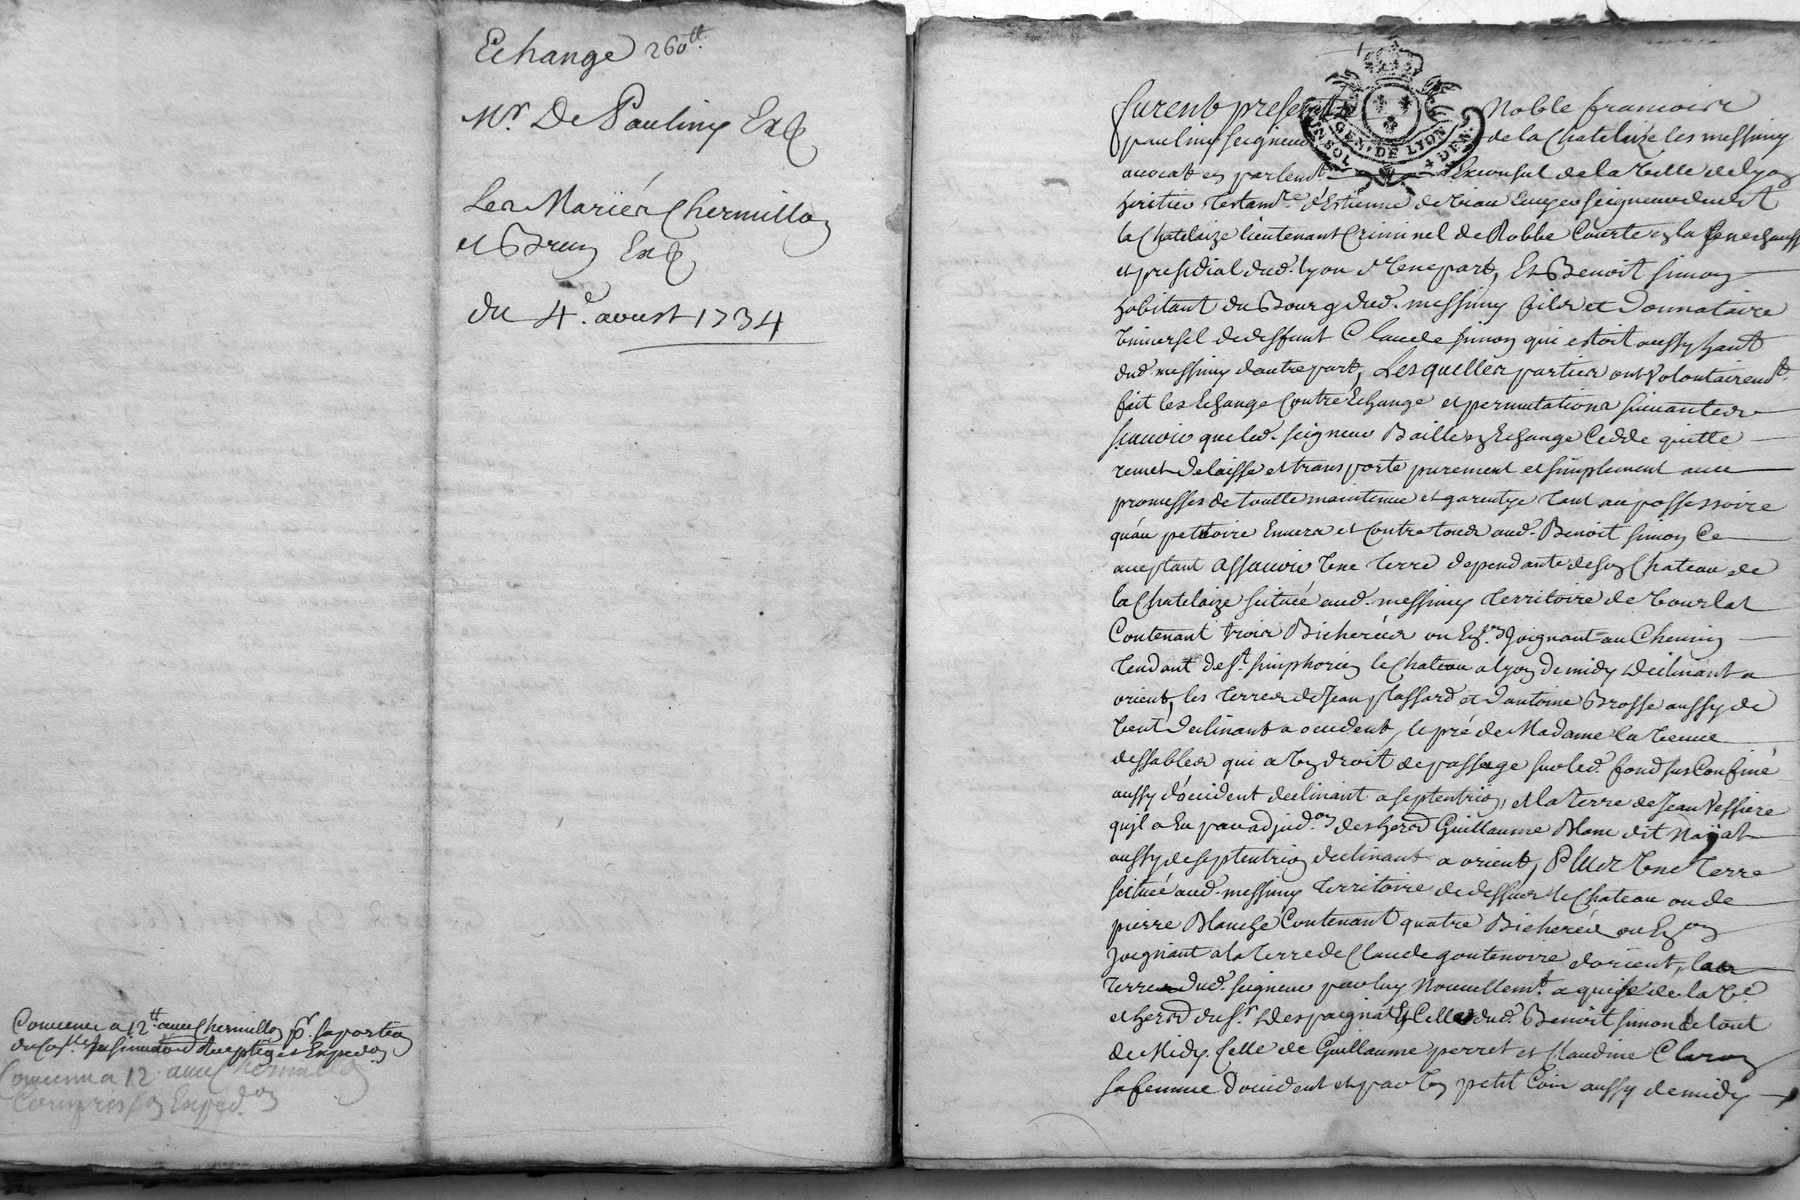 Echange 260ᵗᵗ
Mʳ De Pauliny Exp
Les Mariés Chermillon
et Brun Exp
du 4ᵉ. aoust 1734
Convenu a 12ᵗᵗ avec Chermillon pʳ sa portion
Convenu a 12 avec Chermillon
Compris Exped.ᵒⁿ
GEN. DE LYON
4 DEN.
furent presents Noble francois
pauliny seigneur de la Chatelaize les messimy
avocat en parlemᵗ Exconsul de la ville de lyon
heritier testam.ʳᵉ d'Estienne de Ecuyer seigneur dud
la Chatelaize lieutenant Criminel de Robbe Courte en la senechaussée
et presidial dud. lyon d'une part, Et Benoit simon
habitant du Bourg dud. messimy fils et donnataire
universel de deffunt Claude simon qui estoit aussy hant
dud. messimy d'autre part, Lesquelles parties ont volontairemᵗ
fait les Echange Contre Echange et permutations suivantes
scavoir que led. seigneur Baille en Echange Cedde quitte
remet delaisse et transporte purement et simplement avec
promesses de toutte maintenue et garentye tant au possessoire
qu'au petitoire Envers et Contre tous aud. Benoit simon Ce
acceptant Assavoir Une terre dependante de son Chateau de
la Chatelaize scituée aud. messimy territoire de
Contenant trois Bicherées ou Enᵒⁿ Joignant au Chemin
tendant de Sᵗ simphorien le Chateau a lyon de midy declinant a
orient, les terres de Jean plassard et d'antoine Brosse aussy de
vent declinant a occident, le pré de Madame la veuve
dessables qui a un droit de passage sur led. fond sus Confiné
aussy d'occident declinant a septentrion, et la terre de Jean Vessiere
qu'il a Eu par adjud.ᵒⁿ des hers Guillaume Blanc dit
aussy de septentrion declinant a orient, Plus Une Terre
scituée aud. messimy territoire de dessus le Chateau ou de
pierre Blanche Contenant quatre Bicherées ou Enᵒⁿ
Joignant a la terre de Claude goutenoire d'orient, la
terre dud. seigneur par luy Nouvellemᵗ. acquise de la vᵉ
et hers du Sʳ Despaignat Et Celle dud. Benoit simon de tout
de Midy Celle de Guillaume perret et Claudine
sa femme d'occident et par un petit Coin aussy de midy